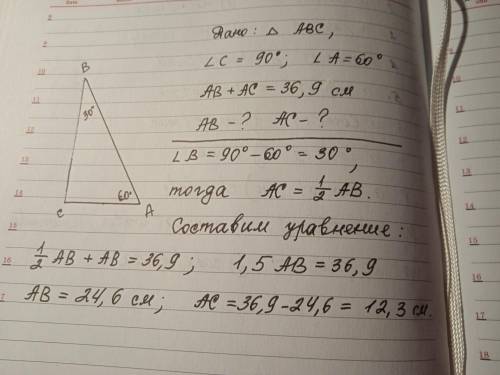 Дано: △ ABC,
∠C = 90°; ∠A = 60°
AB + AC = 36,9 см
AB - ? AC - ?
∠B = 90° - 60° = 30°,
тогда AC = 1/2 AB.
Составим уравнение:
1/2 AB + AB = 36,9; 1,5 AB = 36,9
AB = 24,6 см; AC = 36,9 - 24,6 = 12,3 см.
B
30°
60°
C A